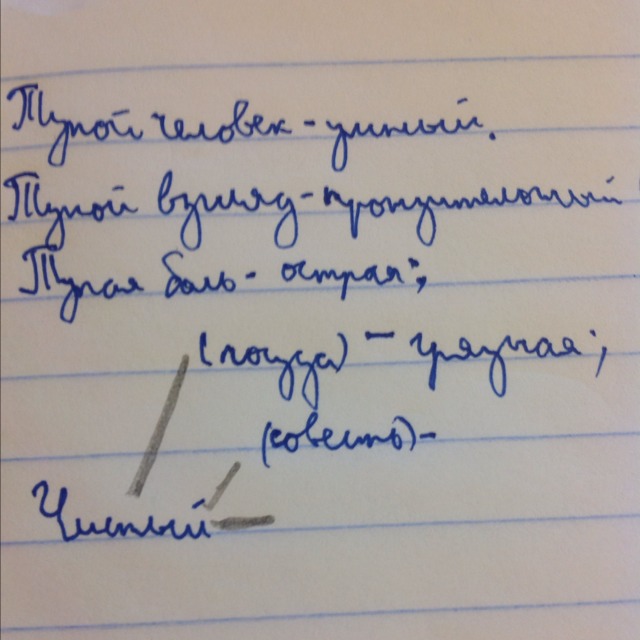 Тупой человек - умный.
Тупой взгляд - пронзительный
Тупая боль - острая;
(посуда) - грязная;
(совесть) -
Чистый